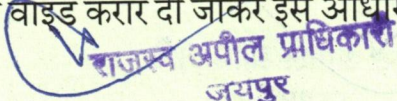 वाइड करार दी जाकर इस आधार
राजस्व अपील प्राधिकारी
जयपुर